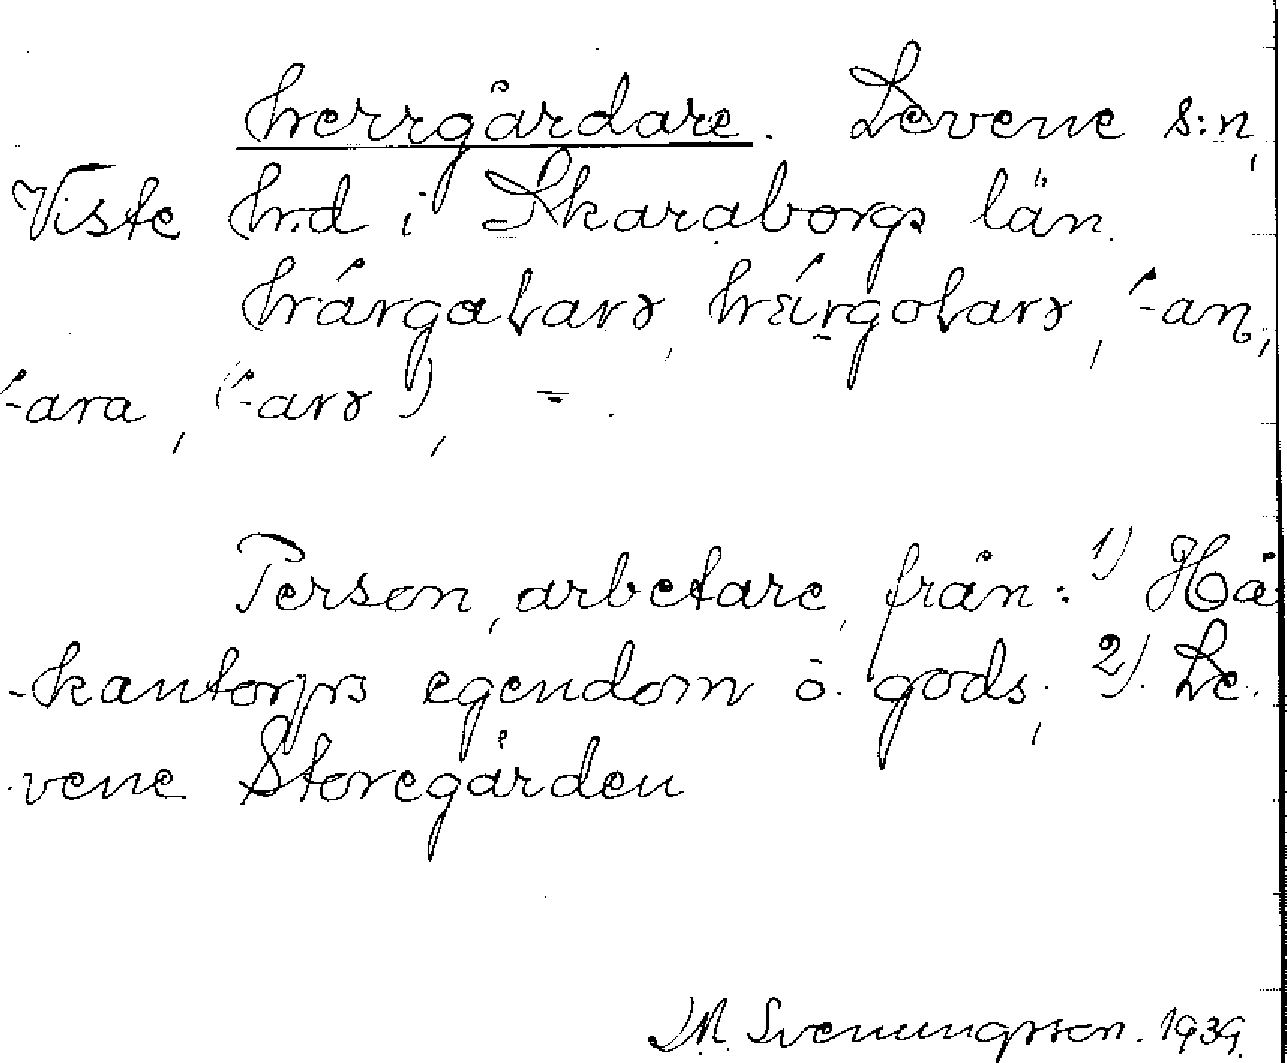 herrgårdare. Levene s:n,
Viste hrd i Skaraborgs län.
-ara, (´-arə),  = .
Person, arbetare, från: 1) Hä
-kantorps egendom o. gods, 2). Le-
vene Storegården
J.M. Svenungsson. 1939.